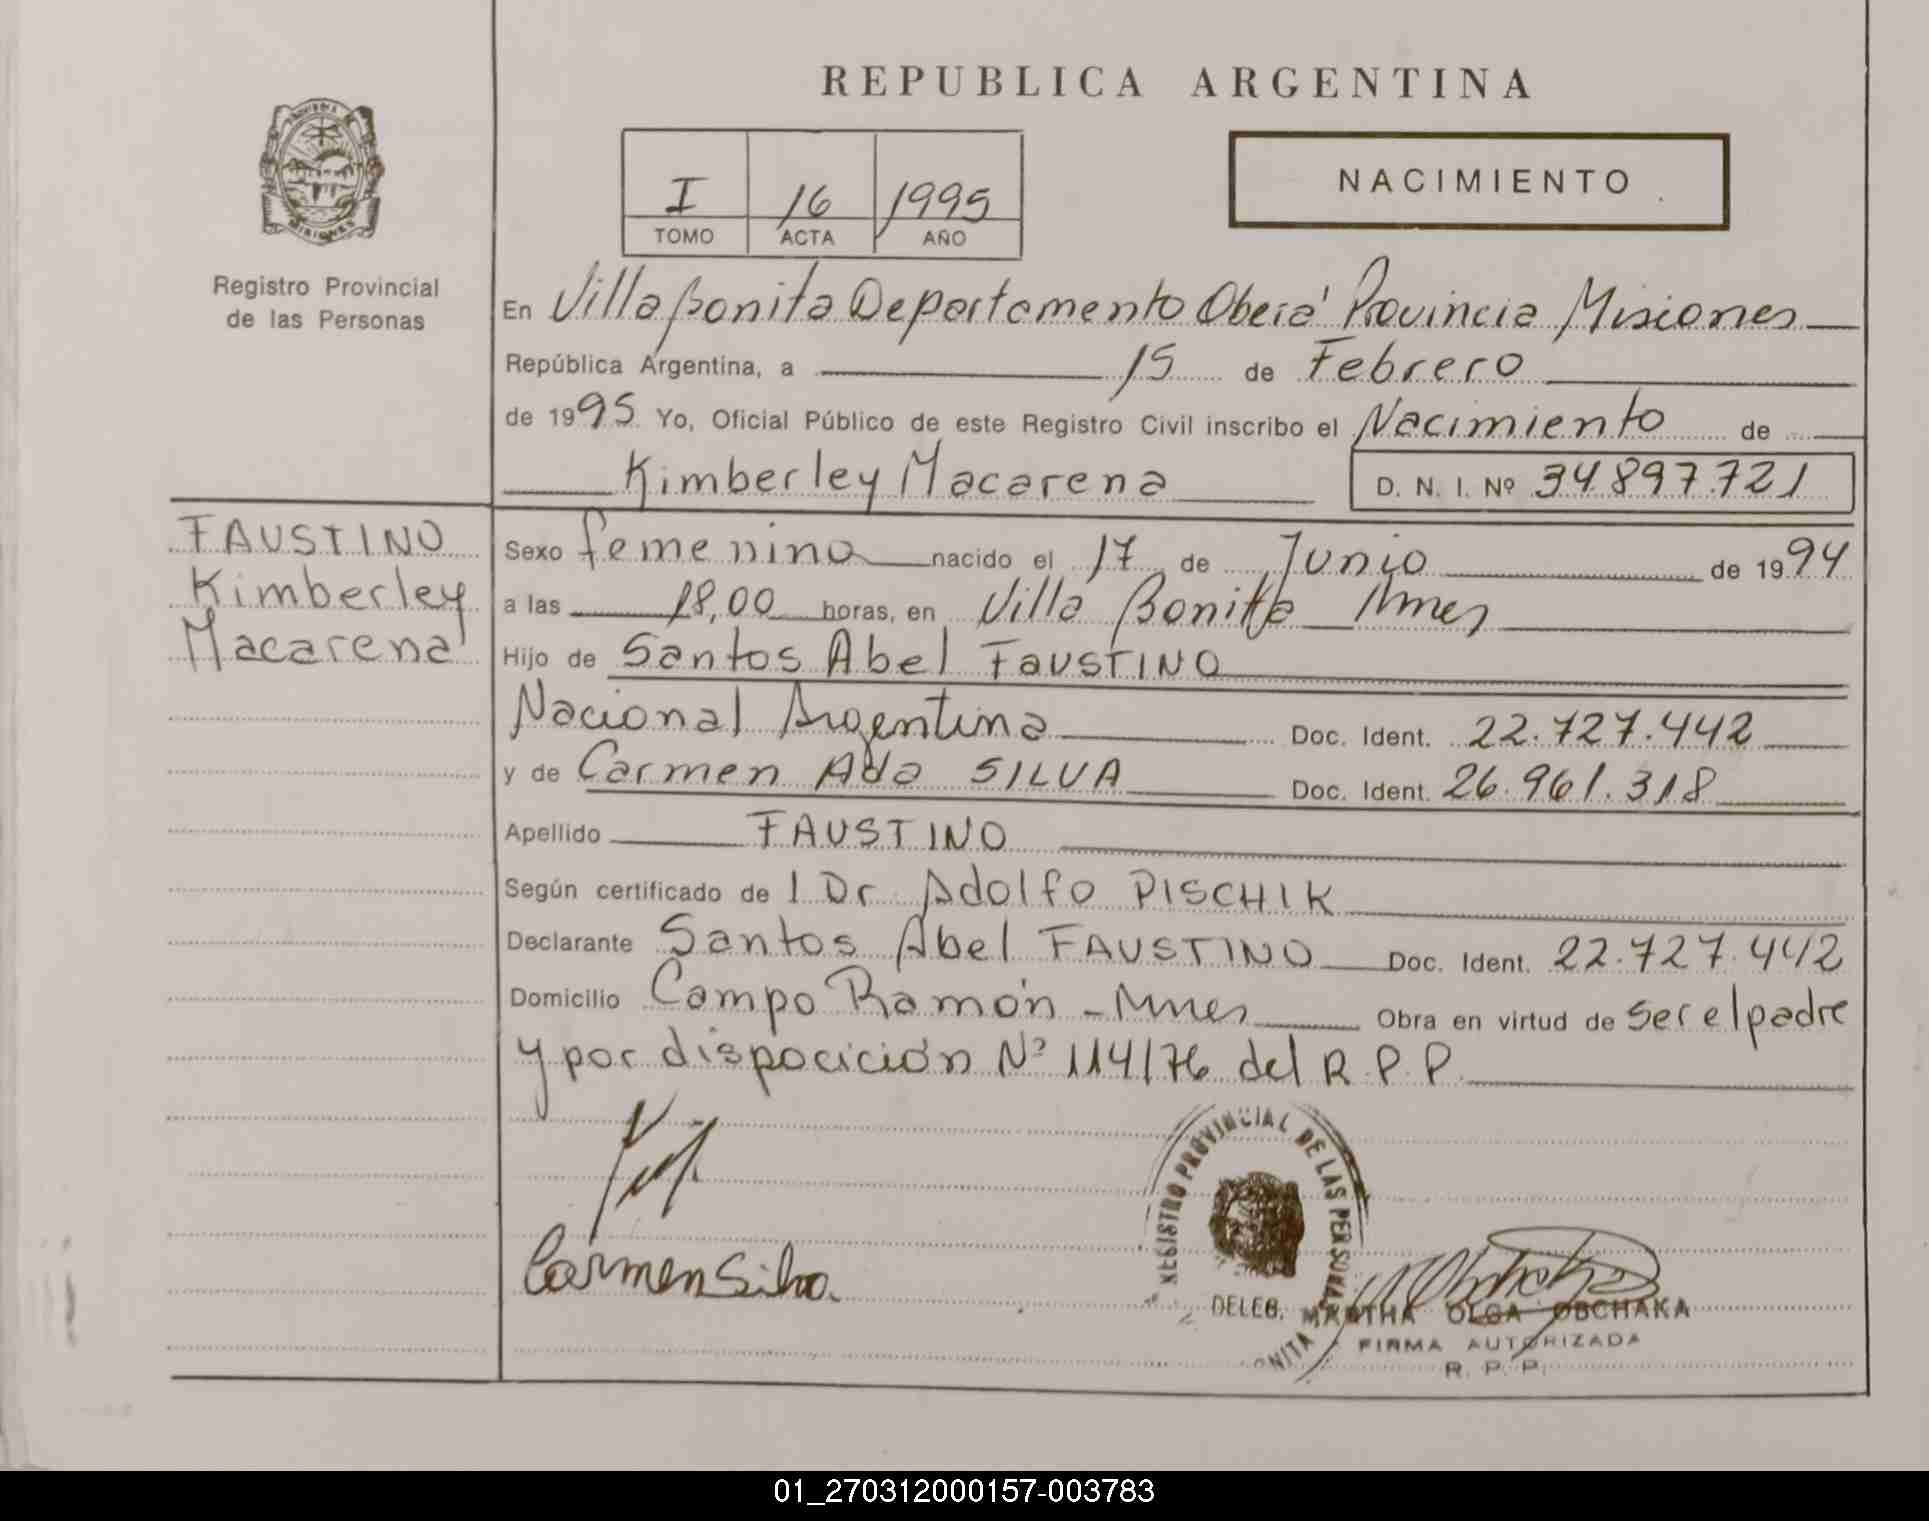 REPUBLICA ARGENTINA
PROVINCIA
MISIONES
Registro Provincial
de las Personas
I 16 1995
TOMO ACTA AÑO
NACIMIENTO
En Villa Bonita Departamento Oberá Provincia Misiones
República Argentina, a 15 de Febrero
de 1995 Yo, Oficial Público de este Registro Civil inscribo el Nacimiento de
Kimberley Macarena D. N. I. Nº 34.897.721
FAUSTINO
Kimberley
Macarena
Sexo femenino nacido el 17 de Junio de 1994
a las 18,00 horas, en Villa Bonita Mnes
Hijo de Santos Abel FAUSTINO
Nacional Argentina Doc. Ident. 22.727.442
y de Carmen Ada SILVA Doc. Ident. 26.961.318
Apellido FAUSTINO
Según certificado de 1 Dr. Adolfo PISCHIK
Declarante Santos Abel FAUSTINO Doc. Ident. 22.727.442
Domicilio Campo Ramón - Mnes Obra en virtud de ser el padre
y por disposición Nº 114/76 del R.P.P.
Carmen Silva
REGISTRO PROVINCIAL DE LAS PERSONAS
DELEG.
NITA
MARTHA OLGA OBCHAKA
FIRMA AUTORIZADA
R. P. P.
01_270312000157-003783